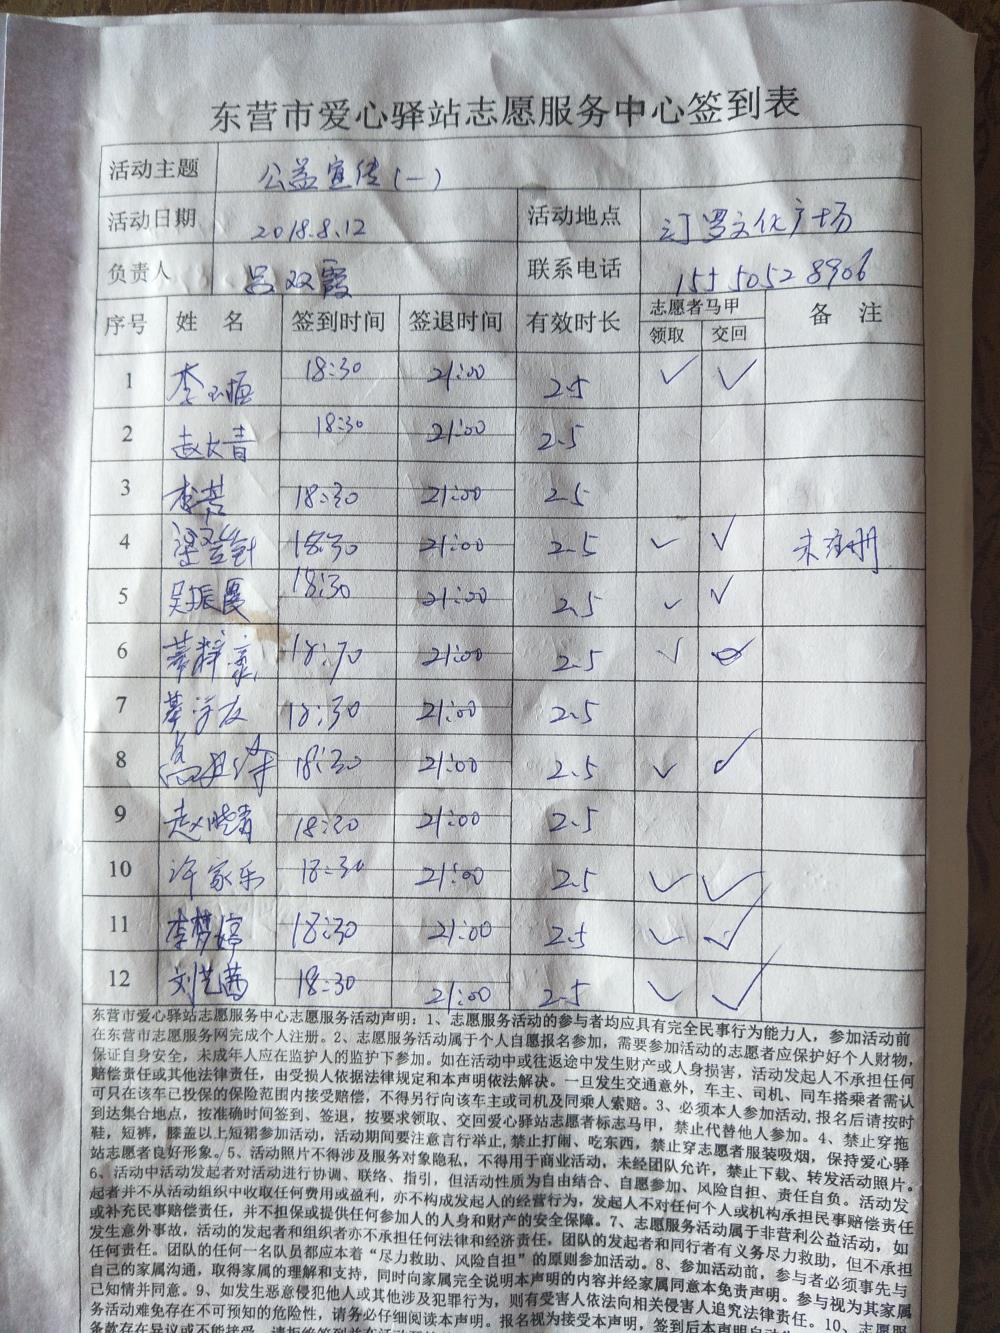 东营市爱心驿站志愿服务中心签到表
活动主题 公益宣传(一)
活动日期 2018.8.12 活动地点 汀罗文化广场
负责人 吕双霞 联系电话 15550528906
序号 姓 名 签到时间 签退时间 有效时长 志愿者马甲 备 注
领取 交回
1 18:30 21:00 2.5 ✓ ✓
2 赵大青 18:30 21:00 2.5
3 18:30 21:00 2.5
4 18:30 21:00 2.5 ✓ ✓ 未注册
5 吴振霞 18:30 21:00 2.5 ✓ ✓
6 21:00 2.5 ✓
7 18:30 21:00 2.5
8 18:30 21:00 2.5 ✓ ✓
9 赵晓青 18:30 21:00 2.5
10 许家乐 18:30 21:00 2.5 ✓ ✓
11 李梦婷 18:30 21:00 2.5 ✓ ✓
12 刘艺茜 18:30 21:00 2.5 ✓ ✓
东营市爱心驿站志愿服务中心志愿服务活动声明：1、志愿服务活动的参与者均应具有完全民事行为能力人，参加活动前
在东营市志愿服务网完成个人注册。2、志愿服务活动属于个人自愿报名参加，需要参加活动的志愿者应保护好个人财物，
保证自身安全，未成年人应在监护人的监护下参加。如在活动中或往返途中发生财产或人身损害，活动发起人不承担任何
赔偿责任或其他法律责任，由受损人依据法律规定和本声明依法解决。一旦发生交通意外，车主、司机、同车搭乘者需认
可只在该车已投保的保险范围内接受赔偿，不得另行向该车主或司机及同乘人索赔。3、必须本人参加活动，报名后请按时
到达集合地点，按准确时间签到、签退，按要求领取、交回爱心驿站志愿者标志马甲，禁止代替他人参加。4、禁止穿拖
鞋，短裤，膝盖以上短裙参加活动，活动期间要注意言行举止，禁止打闹、吃东西，禁止穿志愿者服装吸烟，保持爱心驿
站志愿者良好形象。5、活动照片不得涉及服务对象隐私，不得用于商业活动，未经团队允许，禁止下载、转发活动照片。
6、活动中活动发起者对活动进行协调、联络、指引，但活动性质为自由结合、自愿参加、风险自担、责任自负。活动发
起者并不从活动组织中收取任何费用或盈利，亦不构成发起人的经营行为，发起人不对任何个人或机构承担民事赔偿责任
或补充民事赔偿责任，并不担保或提供任何参加人的人身和财产的安全保障。7、志愿服务活动属于非营利公益活动，如
发生意外事故，活动的发起者和组织者亦不承担任何法律和经济责任，团队的发起者和同行者有义务尽力救助，但不承担
任何责任。团队的任何一名队员都应本着“尽力救助、风险自担”的原则参加活动。8、参加活动前，参与者必须事先与
自己的家属沟通，取得家属的理解和支持，同时向家属完全说明本声明的内容并经家属同意本免责声明。参与视为其家属
已知情并同意。9、如发生恶意侵犯他人或其他涉及犯罪行为，则有受害人依法向相关侵害人追究法律责任。10、志愿服
务活动难免存在不可预知的危险性，请务必仔细阅读本声明。报名视为接受本声明，签到后本声明自动
条款存在异议或不能接受，请拒绝签到并